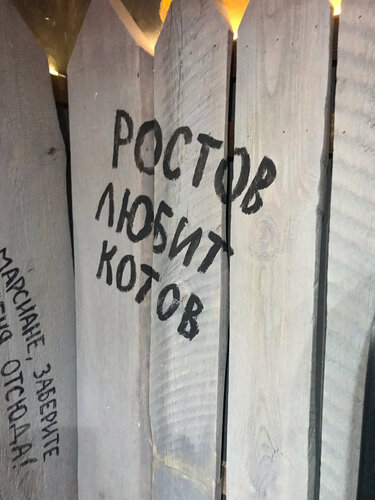 РОСТОВ
ЛЮБИТ
КОТОВ
МАРСИАНЕ, ЗАБЕРИТЕ
ОТСЮДА!